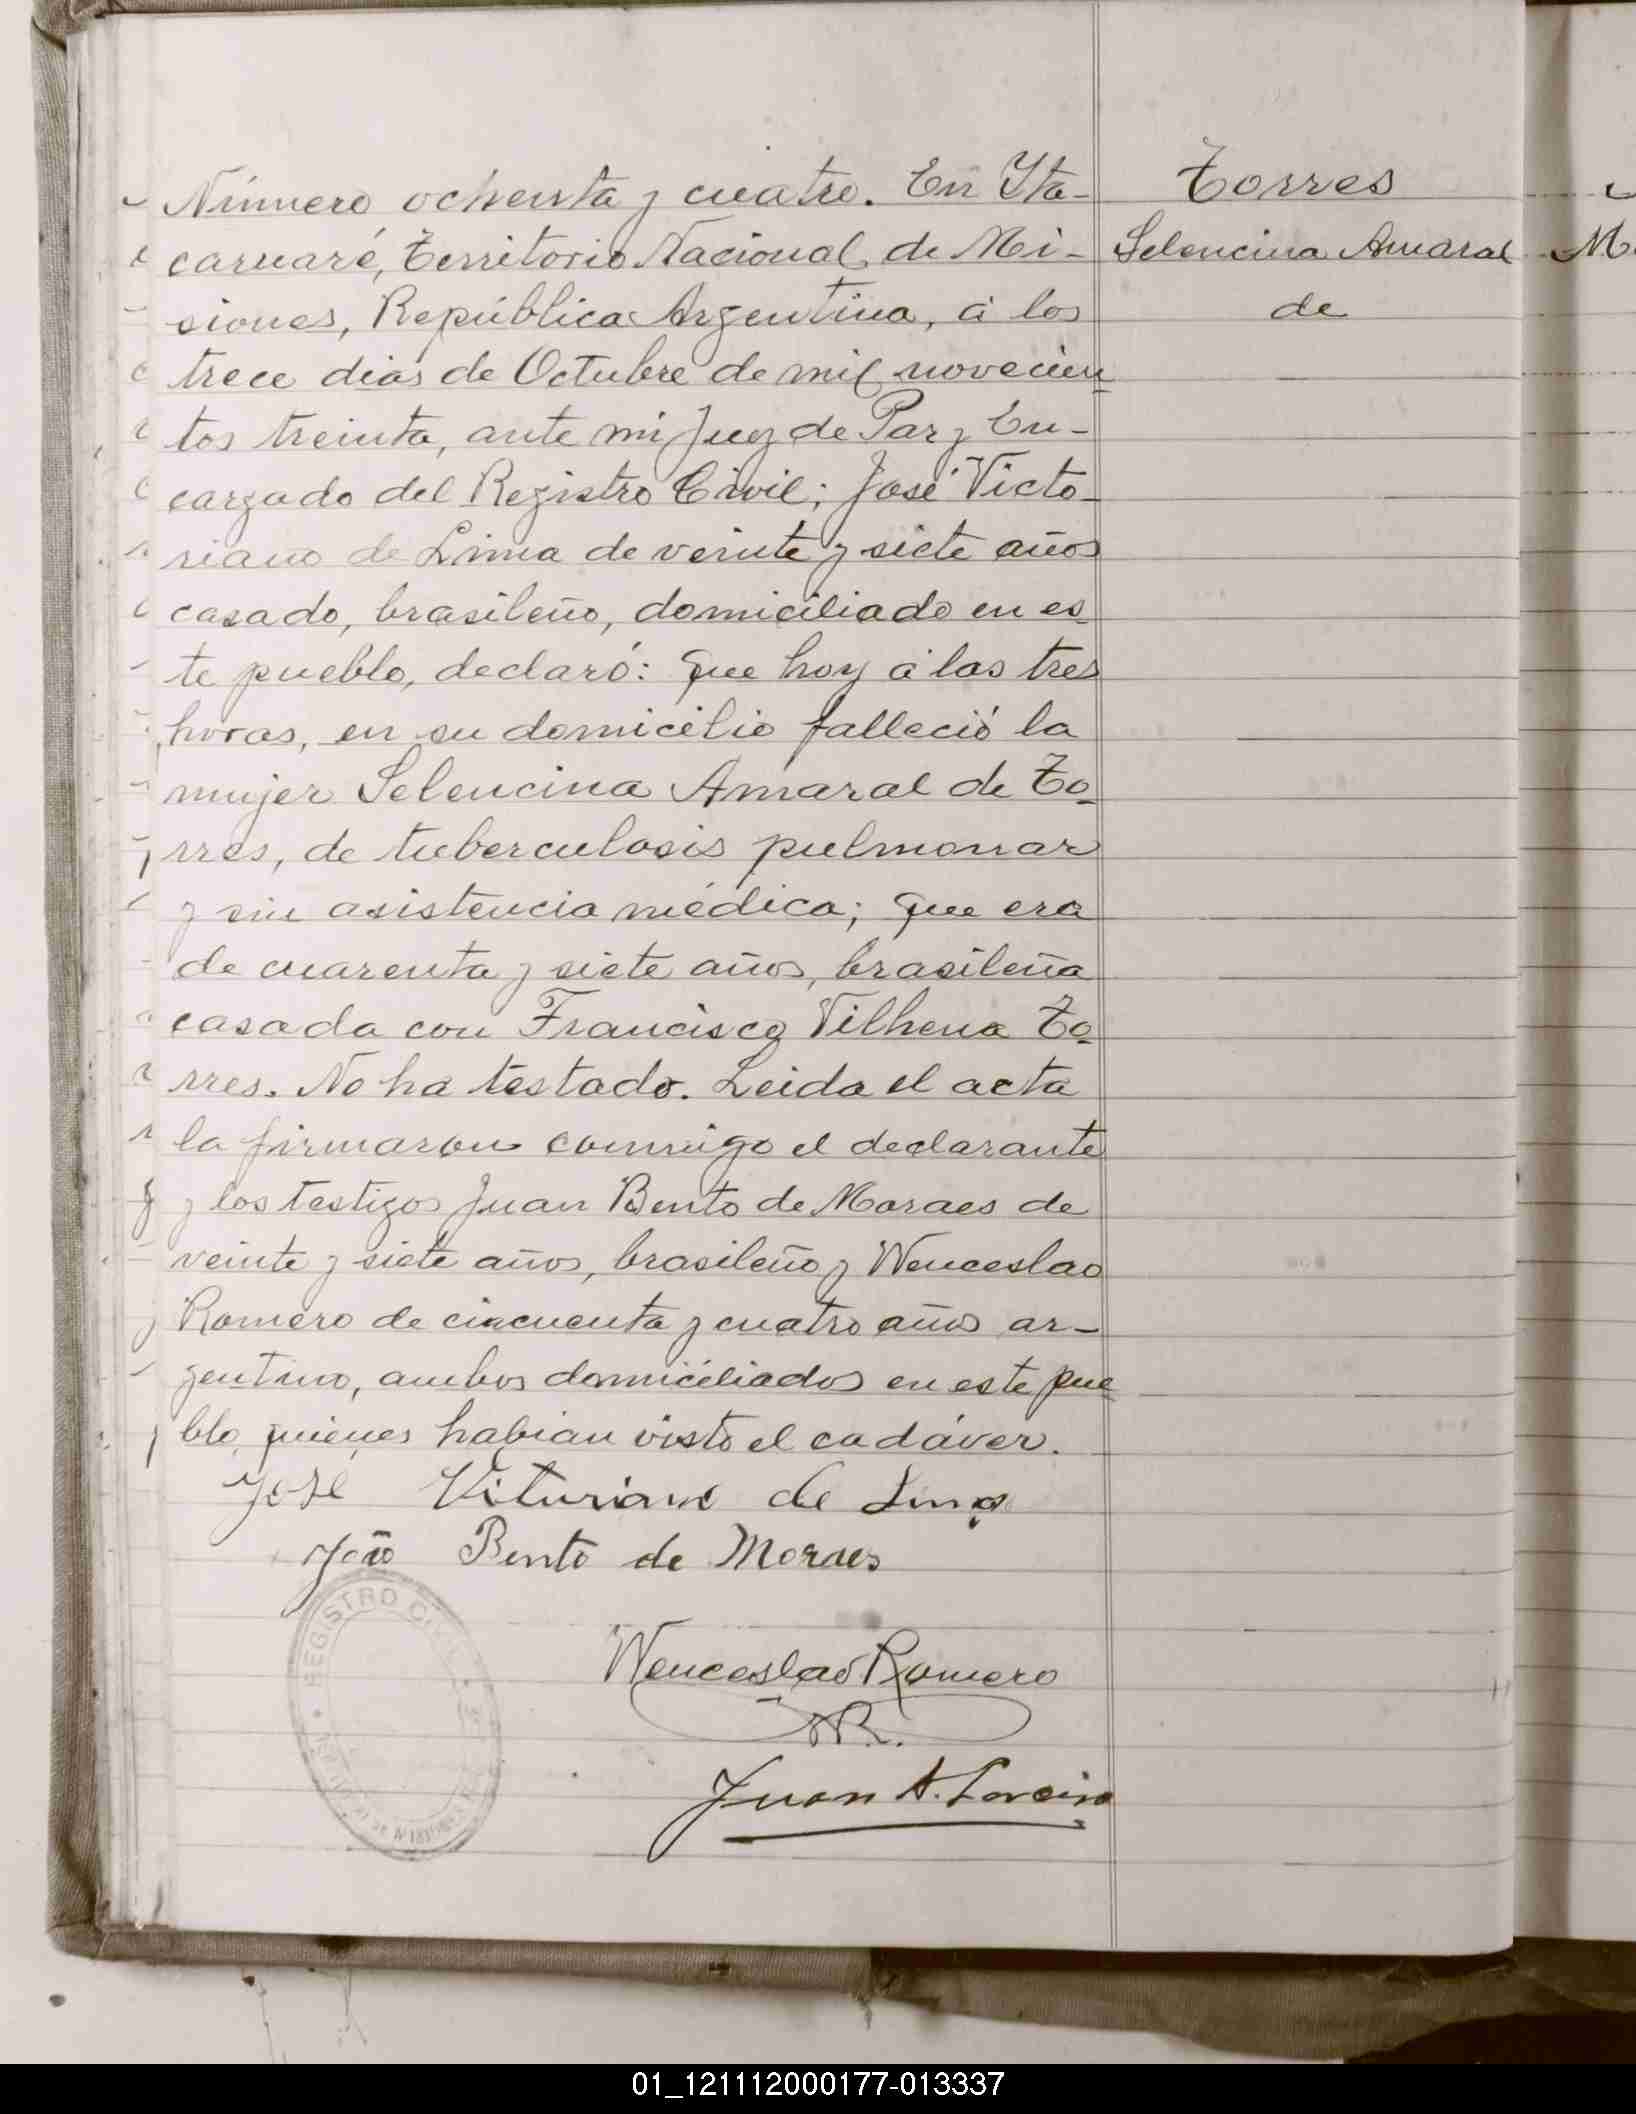 Número ochenta y cuatro. En Ita-
caruaré, Territorio Nacional de Mi-
siones, República Argentina, á los
trece dias de Octubre de mil novecien
tos treinta, ante mi Juez de Paz y En-
cargado del Registro Civil; José Victo-
riano de Lima de veinte y siete años
casado, brasileño, domiciliado en es
te pueblo, declaró: que hoy á las tres
horas, en su domicilio falleció la
mujer Selencina Amaral de To-
rres, de tuberculosis pulmonar
y sin asistencia médica; que era
de cuarenta y siete años, brasileña
casada con Francisco Vilhena To-
rres. No ha testado. Leida el acta
la firmaron conmigo el declarante
y los testigos Juan Bento de Moraes de
veinte y siete años, brasileño y Wenceslao
Romero de cincuenta y cuatro años ar-
gentino, ambos domiciliados en este pue
blo quienes habian visto el cadáver.
José Vituriano de Lima
João Bento de Moraes
Wenceslao Romero
Juan A.
REGISTRO CIVIL
Torres
Selencina Amaral
de
M
01_121112000177-013337